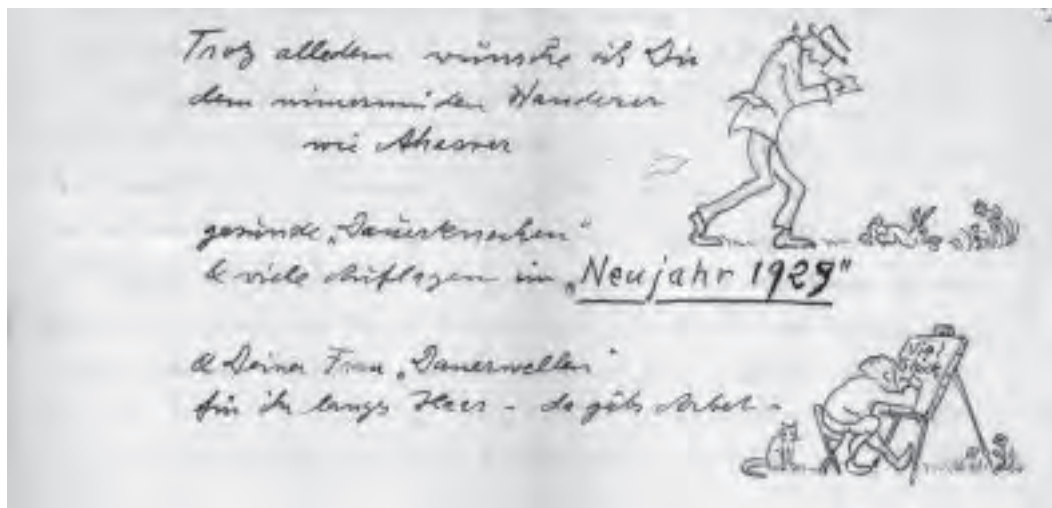 Trotz alledem wünsche ich Dir
dem nimermüden Wanderer
wie Ahasver
gesunde „Dauerknochen“
& viele Auflagen im „Neujahr 1929“
& Deiner Frau „Dauerwellen“
für ihr langs Haar - da gibts Arbet -
Viel
Glück